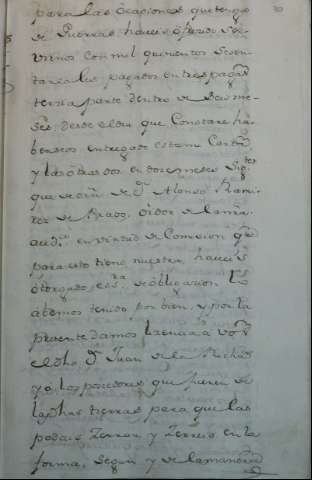 para las ocaciones que tengo
de Guerras haueis ofrecido Ser-
virnos con mil quinientos Sesen-
ta reales pagados en tres pagas
tersia parte dentro de Seis me-
ses, desde el dia que Constare ha-
berseos entregado esta mi Carta
y las otras dos en dose meses Sigtes
que ante de Dn. Alonso Rami-
rez de Prado, oidor de la mia
audia. en virtud de Comision que
para esto tiene nuestra, haueis
otorgado esra. de obligacion lo
abemos tenido por bien, y por la
presente damos lisencia a vos
el dho Dn. Juan de la
y a los posedores que fueren de
las dhas tierras para que las
podais Zerrar y Zerreis en la
forma, Segun y de la manera